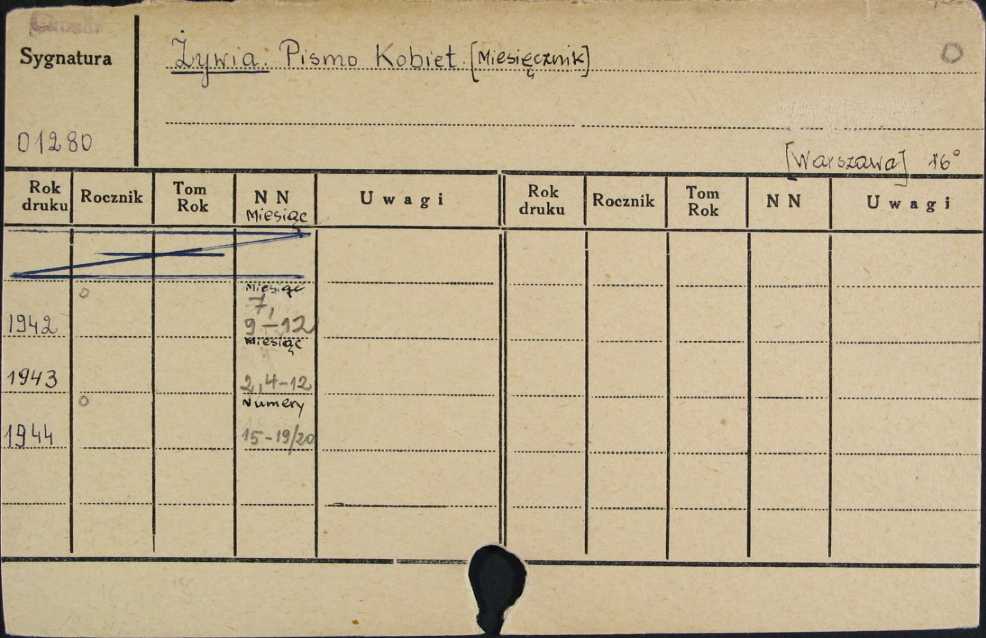 Sygnatura
Żywia. Pismo Kobiet. [Miesięcznik]
01280
[Warszawa] 16°
Rok druku Rocznik Tom Rok NN Uwagi Rok druku Rocznik Tom Rok NN Uwagi
Miesiąc
Miesiąc
7,
1942 9-12
Miesiąc
1943 2,4-12
Numery
1944 15-19/20